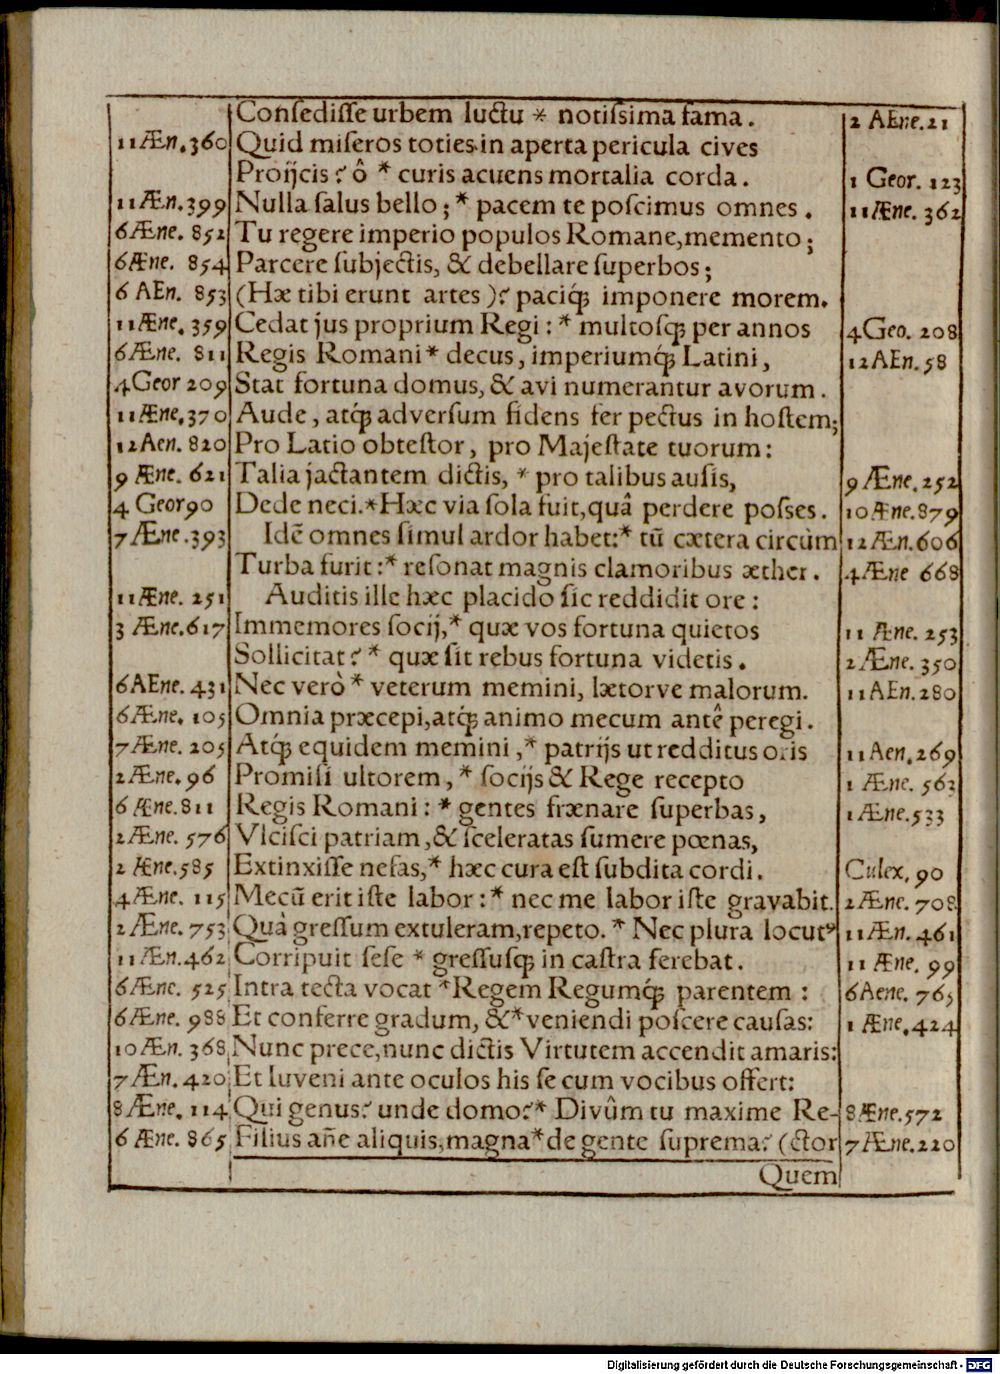 Conſediſſe urbem luctu * notiſsima fama. 2 AEne.21
11Æn.360 Quid miſeros toties in aperta pericula cives
Proijcis? ô * curis acuens mortalia corda. 1 Geor. 123
11Æn.399 Nulla ſalus bello; * pacem te poſcimus omnes. 11Æne. 362
6Æne. 852 Tu regere imperio populos Romane, memento;
6Æne. 854 Parcere ſubjectis, & debellare ſuperbos;
6 AEn. 853 (Hæ tibi erunt artes)? paciq́; imponere morem.
11Æne. 359 Cedat jus proprium Regi: * multoſq; per annos 4Geo. 208
6Æne. 811 Regis Romani * decus, imperiumq́; Latini, 12AEn. 58
4Geor 209 Stat fortuna domus, & avi numerantur avorum.
11Æne. 370 Aude, atq́; adverſum fidens fer pectus in hoſtem;
12Aen. 820 Pro Latio obteſtor, pro Majeſtate tuorum:
9 Æne. 621 Talia jactantem dictis, * pro talibus auſis, 9Æne. 252
4 Geor90 Dede neci.*Hæc via ſola fuit, quâ perdere poſſes. 10Æne.879
7Æne.393 Idē omnes ſimul ardor habet:* tū cætera circùm 12Æn.606
Turba furit:* reſonat magnis clamoribus æther. 4Æne 668
11Æne. 251 Auditis ille hæc placido ſic reddidit ore:
3 Æne.617 Immemores ſocij,* quæ vos fortuna quietos 11 Æne. 253
Sollicitat? * quæ ſit rebus fortuna videtis. 2Æne. 350
6AEne. 431 Nec verò * veterum memini, lætorve malorum. 11AEn. 280
6Æne. 105 Omnia præcepi, atq́; animo mecum antē peregi.
7Æne. 205 Atq́; equidem memini,* patrijs ut redditus oris 11Aen.269
2Æne.96 Promiſi ultorem, * ſocijs & Rege recepto 1 Æne. 563
6 Æne.811 Regis Romani: * gentes frænare ſuperbas, 1Æne.533
2Æne. 576 Vlciſci patriam, & ſceleratas ſumere pœnas,
2 Æne.585 Extinxiſſe nefas,* hæc cura eſt ſubdita cordi. Culex, 90
4Æne. 115 Mecū erit iſte labor: * nec me labor iſte gravabit. 2Æne. 708
2Æne. 753 Quâ greſſum extuleram, repeto. * Nec plura locutꝰ 11Æn. 461
11Æn.462 Corripuit ſeſe * greſſuſq; in caſtra ferebat. 11 Æne. 99
6Æne. 525 Intra tecta vocat *Regem Regumq́; parentem: 6Aene. 765
6Æne. 988 Et conferre gradum, &*veniendi poſcere cauſas: 1 Æne.424
10Æn. 368 Nunc prece, nunc dictis Virtutem accendit amaris:
7Æn. 420 Et Iuveni ante oculos his ſe cum vocibus offert:
8Æne. 114 Qui genus? unde domo?* Divûm tu maxime Re- 8Æne.572
6 Æne. 865 Filius añe aliquis, magna*de gente ſuprema? (ctor 7Æne.220
Quem
Digitalisierung gefördert durch die Deutsche Forschungsgemeinschaft - DFG